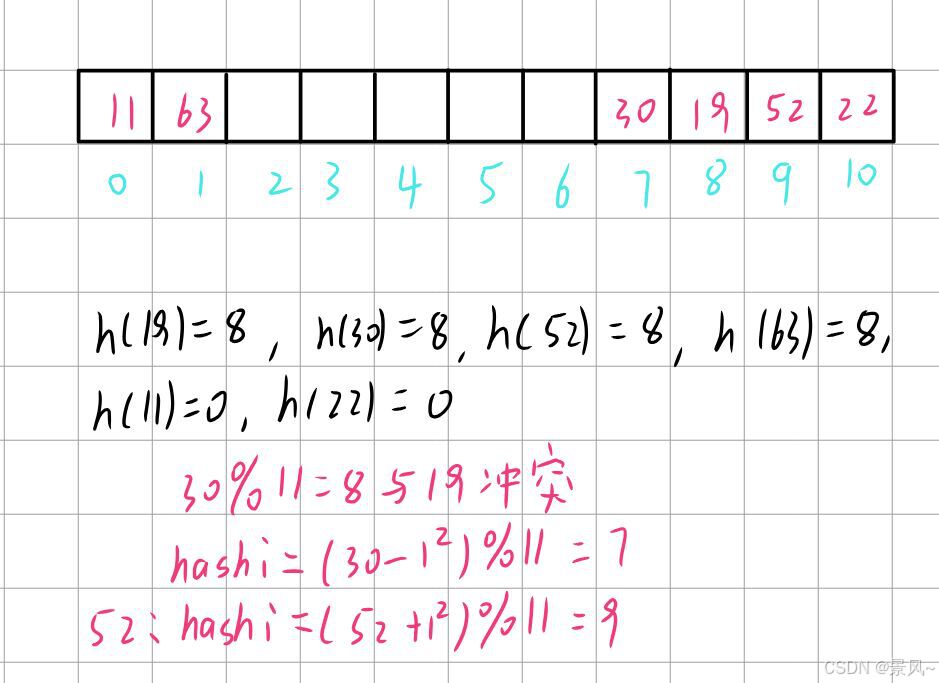 11 63 30 19 52 22
0 1 2 3 4 5 6 7 8 9 10
h(19)=8, h(30)=8, h(52)=8, h(63)=8,
h(11)=0, h(22)=0
30%11=8与19冲突
hashi=(30-1²)%11=7
52:hashi=(52+1²)%11=9
CSDN @景风~